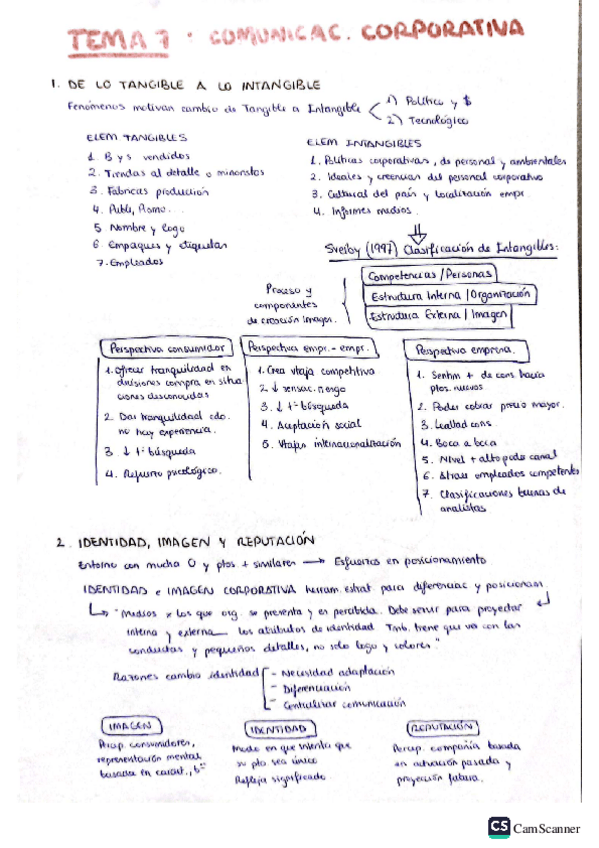 TEMA 7 : COMUNICAC. CORPORATIVA
1. DE LO TANGIBLE A LO INTANGIBLE
Fenómenos motivan cambio de Tangible a Intangible
1) Político y $
2) Tecnológico
ELEM TANGIBLES
1. B y s vendidos
2. Tiendas al detalle o minoristas
3. Fabricas producción
4. Publi, Promo...
5 Nombre y logo
6 Empaques y etiquetas
7. Empleados
ELEM INTANGIBLES
1. Políticas corporativas, de personal y ambientales
2. Ideales y creencias del personal corporativo
3. Cultural del país y localización empr.
4. Informes medios.
Sveiby (1997) Clasificación de Intangibles:
Proceso y
componentes
de creación imagen.
Competencias / Personas
Estructura Interna / Organización
Estructura Externa / Imagen
Perspectiva consumidor
1. Ofrecer tranquilidad en
decisiones compra en situa
ciones desconocidas
2. Dar tranquilidad cdo.
no hay experiencia.
3 ↓ tº búsqueda
4. Refuerzo psicológico.
Perspectiva empr. - empr.
1. Crea vtaja competitiva
2 ↓ sensac. riesgo
3. ↓ tº búsqueda
4. Aceptación social
5. Vtajas internacionalización
Perspectiva empresa.
1. Senhm + de cons hacia
ptos. nuevos
2. Poder cobrar precio mayor.
3. Lealtad cons.
4. Boca a boca
5. Nivel + alto poder canal
6. Atrae empleados competentes
7. Clasificaciones buenas de
analistas
2. IDENTIDAD, IMAGEN Y REPUTACIÓN
Entorno con mucha O y ptos + similares → Esfuerzos en posicionamiento
IDENTIDAD e IMAGEN CORPORATIVA herram. estrat. para diferenciac y posicionam.
"Medios x los que org. se presenta y es percibida. Debe servir para proyectar
interna y externa los atributos de identidad Tmb. tiene que ver con las
conductas y pequeños detalles, no solo logo y colores."
Razones cambio identidad
- Necesidad adaptación
- Diferenciación
- Centralizar comunicación
IMAGEN
Percep. consumidores,
representación mental
basada en caract., bº
IDENTIDAD
Modo en que intenta que
su pto sea único
Refleja significado
REPUTACIÓN
Percep. compañía basada
en actuación pasada y
proyección futura.
CS CamScanner